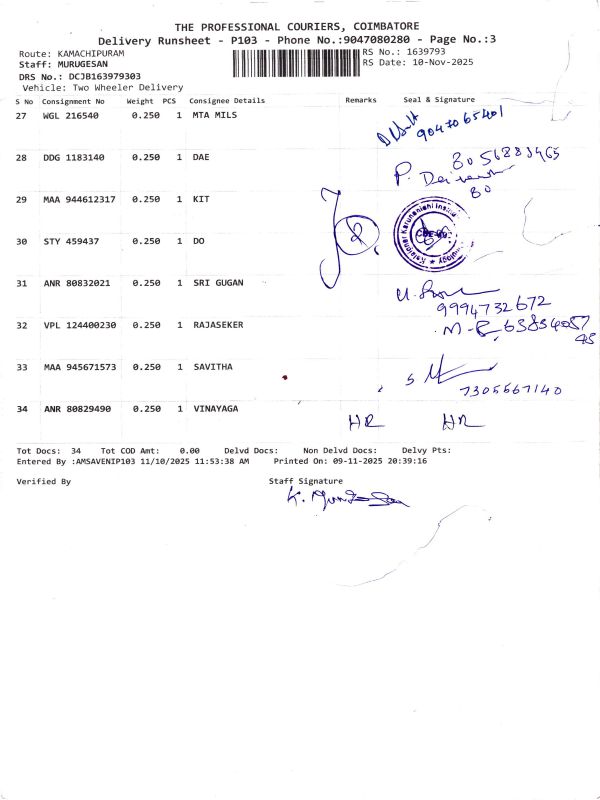 THE PROFESSIONAL COURIERS, COIMBATORE
Delivery Runsheet - P103 - Phone No.:9047080280 - Page No.:3
Route: KAMACHIPURAM
RS No.: 1639793
Staff: MURUGESAN
RS Date: 10-Nov-2025
DRS No.: DCJB163979303
Vehicle: Two Wheeler Delivery
S No Consignment No Weight PCS Consignee Details Remarks Seal & Signature
27 WGL 216540 0.250 1 MTA MILS
9047065401
28 DDG 1183140 0.250 1 DAE
P.
80
29 MAA 944612317 0.250 1 KIT
2
30 STY 459437 0.250 1 DO
31 ANR 80832021 0.250 1 SRI GUGAN
9994732672
32 VPL 124400230 0.250 1 RAJASEKER
33 MAA 945671573 0.250 1 SAVITHA
7305667140
34 ANR 80829490 0.250 1 VINAYAGA
HR HR
Tot Docs: 34 Tot COD Amt: 0.00 Delvd Docs: Non Delvd Docs: Delvy Pts:
Entered By :AMSAVENIP103 11/10/2025 11:53:38 AM Printed On: 09-11-2025 20:39:16
Verified By Staff Signature